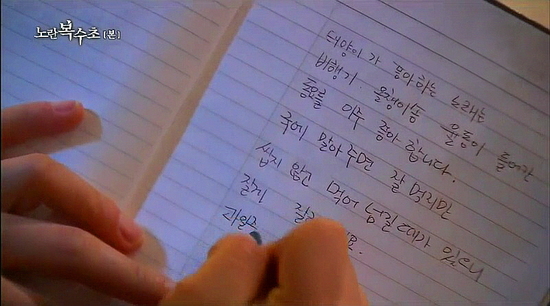 노란 복수초 [본]
태양이가 좋아하는 노래는
비행기. 올챙이송 율동이 들어간
동요를 아주 좋아합니다.
국에 말아주면 잘 먹지만
씹지 않고 먹어 넘길 때가 있으니
잘게
과일은